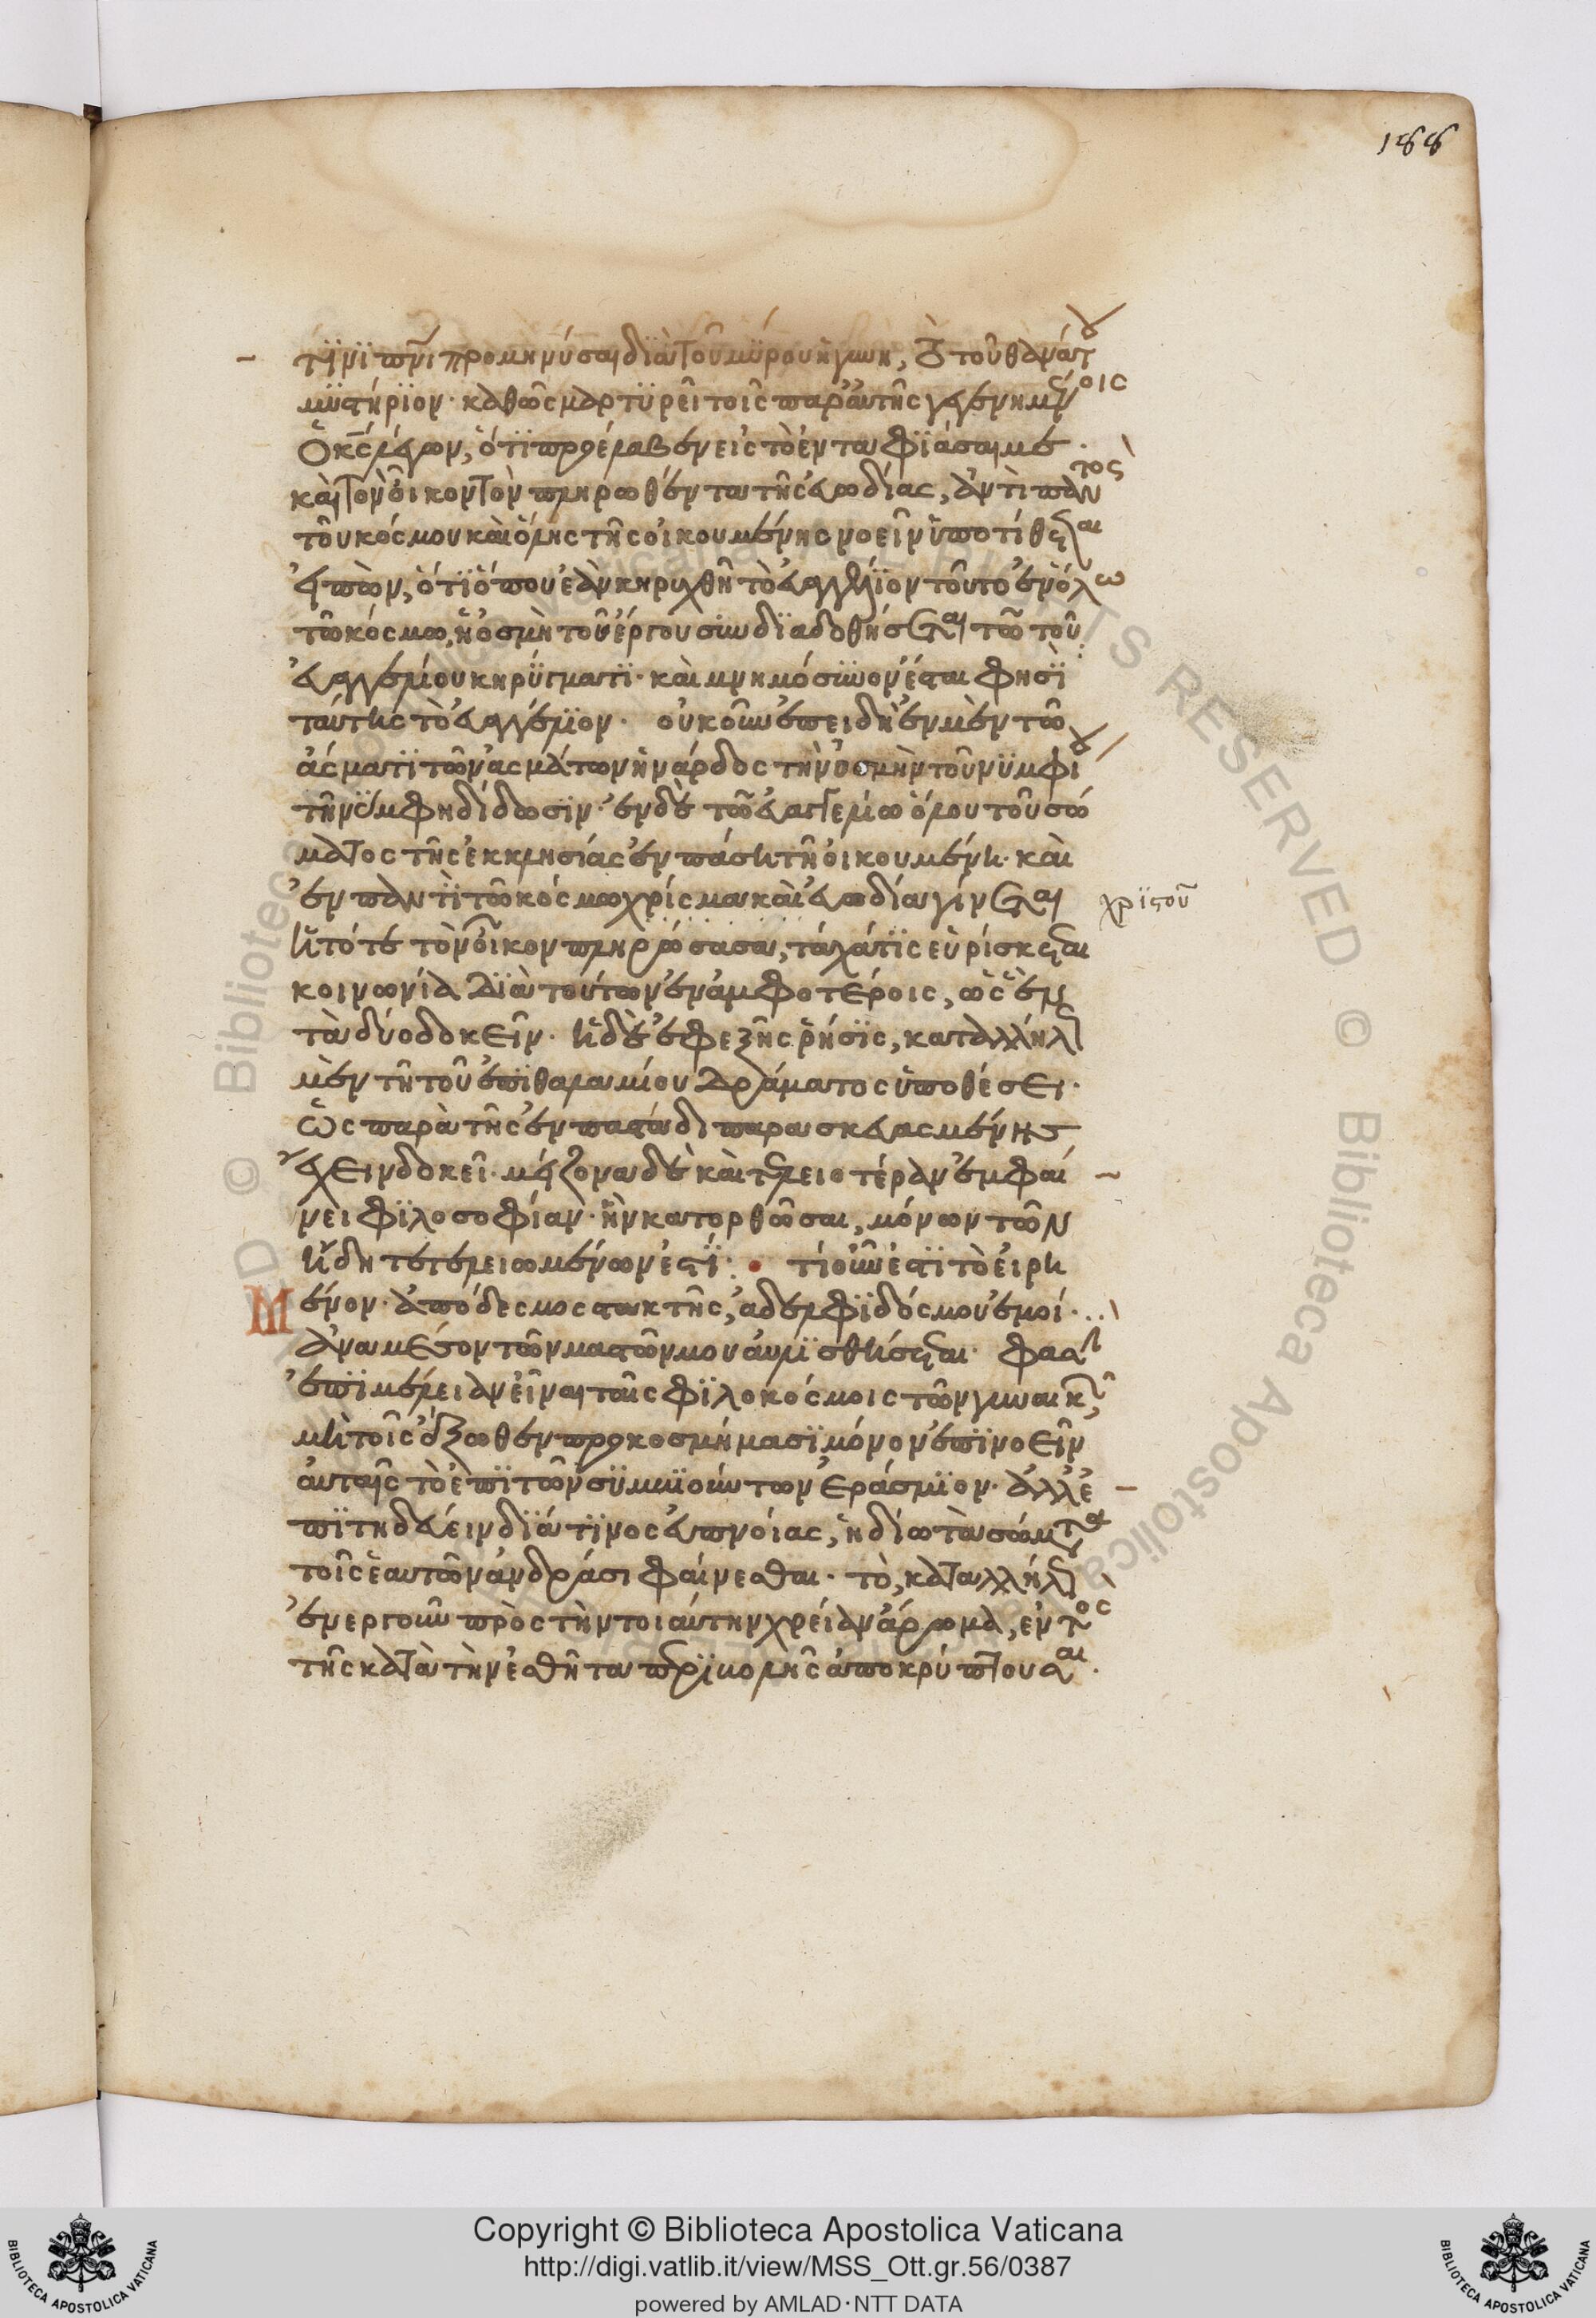 188
τινι πνι προμηνύσαι διὰ τοῦ μύρου ἡ γυνὴ, τὸ τοῦ θανάτου
μυστήριον· καθὼς μαρτυρεῖ τοῖς παρ' αὐτῆς γεγενημένοις
ὁ κς λέγων, ὅτι προέλαβεν εἰς τὸ ἐνταφιάσαι με·
καὶ τὸν οἶκον τὸν πληρωθέντα τῆς εὐωδίας, ἀντὶ παντὸς
τοῦ κόσμου καὶ ὅλης τῆς οἰκουμένης νοεῖν ὑποτίθεται
εἰπὼν, ὅτι ὅπου ἐὰν κηρυχθῆ τὸ εὐαγγέλιον τοῦτο ἐν ὅλω
τῶ κόσμω, ἡ ὀσμὴ τοῦ ἔργου συνδιαδοθήσεται τῶ τοῦ
εὐαγγελίου κηρύγματι· καὶ μνημόσυνον ἔσται φησὶ
ταύτης τὸ εὐαγγέλιον· οὐκοῦν ἐπειδὴ ἐν μὲν τῶ
ἄσματι τῶν ἀσμάτων ἡ νάρδος τὴν ὀσμὴν τοῦ νυμφίου
τῆ νύμφη δίδωσιν· ἐν δὲ τῶ εὐαγγελίω ὅλου τοῦ σώ
ματος τῆς ἐκκλησίας ἐν πάση τῆ οἰκουμένη· καὶ
ἐν παντὶ τῶ κόσμω χρίσμα καὶ εὐωδία γίνεται
χριστοῦ
ἡ τότε τὸν οἶκον πληρώσασα, τάχα τίς εὑρίσκεται
κοινωνία διὰ τούτων ἐν ἀμφοτέροις, ὡς ἓν
τὰ δύο δοκεῖν· ἡ δὲ ἐφεξῆς ῥῆσις, καταλλήλως
μὲν τῆ τοῦ ἐπιθαλαμίου δράματος ὑποθέσει·
ὡς παρὰ τῆς ἐν παστάδι παρασκευασμένης
ἔχειν δοκεῖ· μείζονα δὲ καὶ τελειοτέραν ἐμφαί
νει φιλοσοφίαν· ἣν κατορθῶσαι, μόνων τῶν
ἤδη τετελειωμένων ἐστί· τί οὖν ἐστι τὸ εἰρη
Μένον· ἀπόδεσμος στακτῆς, ἀδελφιδός μου ἐμοί·
ἀναμέσον τῶν μαστῶν μου αὐλισθήσεται· φασὶν
ἐπιμελὲς εἶναι ταῖς φιλοκόσμοις τῶν γυναικῶν,
μὴ τοῖς ἔξωθεν προκοσμήμασι μόνον ἐπινοεῖν
αὐταῖς τὸ ἐπὶ τῶν συμβιούντων ἐράσμιον· ἀλλ' ἐ
πιτηδεύειν διά τινος εὐπνοίας, ἡδίω τὰ σώματα
τοῖς ἑαυτῶν ἀνδράσι φαίνεσθαι· τὸ, καταλλήλως
ἐνεργοῦν πρὸς τὴν τοιαύτην χρείαν ἄρωμα, ἐντὸς
τῆς κατὰ τὴν ἐσθῆτα περιβολῆς ἀποκρύπτουσαι·
BIBLIOTECA APOSTOLICA VATICANA
Copyright © Biblioteca Apostolica Vaticana
http://digi.vatlib.it/view/MSS_Ott.gr.56/0387
powered by AMLAD·NTT DATA
BIBLIOTECA APOSTOLICA VATICANA